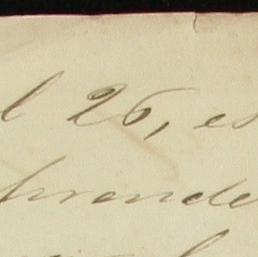 l 25, es
prende